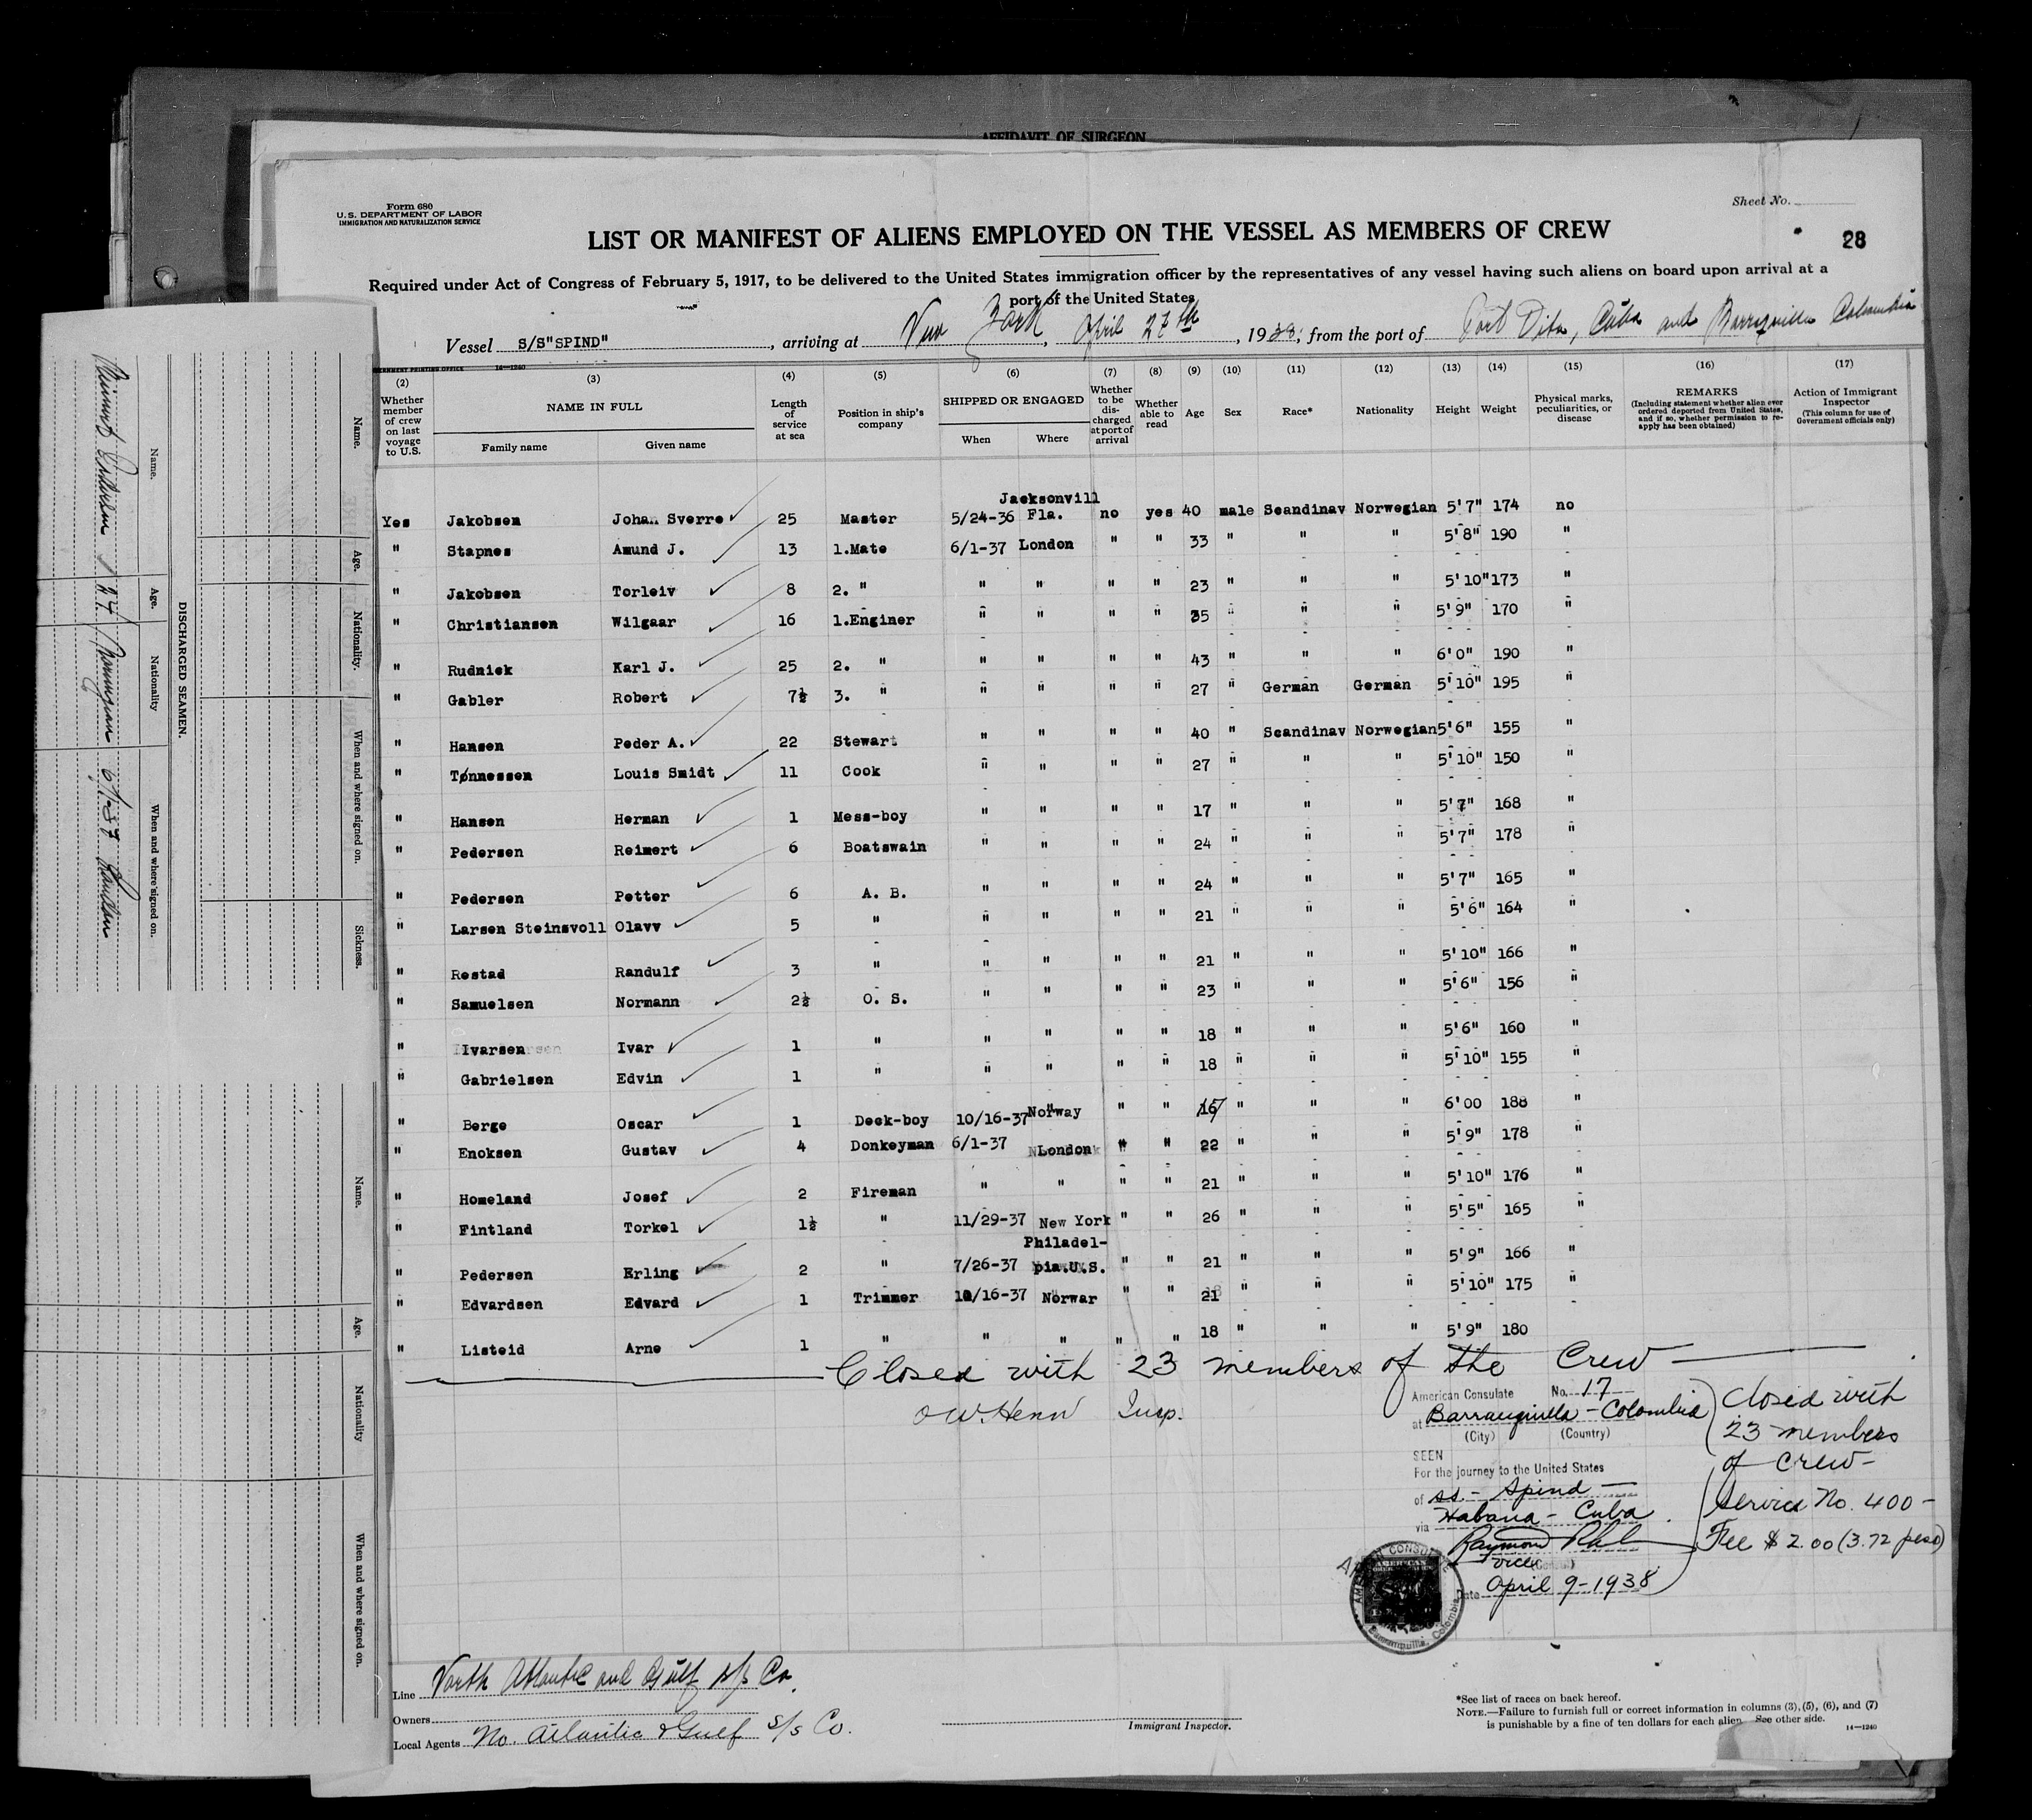 AFFIDAVIT OF SURGEON
Form 680
U.S. DEPARTMENT OF LABOR
IMMIGRATION AND NATURALIZATION SERVICE
Sheet No.
28
LIST OR MANIFEST OF ALIENS EMPLOYED ON THE VESSEL AS MEMBERS OF CREW
Required under Act of Congress of February 5, 1917, to be delivered to the United States immigration officer by the representatives of any vessel having such aliens on board upon arrival at a
port of the United States
Vessel S/S"SPIND", arriving at New York, April 27th, 1938, from the port of Port Vita, Cuba and Colombia
(2) Whether member of crew on last voyage to U.S.
(3) NAME IN FULL Family name Given name
(4) Length of service at sea
(5) Position in ship's company
(6) SHIPPED OR ENGAGED When Where
(7) Whether to be discharged at port of arrival
(8) Whether able to read
(9) Age
(10) Sex
(11) Race*
(12) Nationality
(13) Height
(14) Weight
(15) Physical marks, peculiarities, or disease
(16) REMARKS (Including statement whether alien ever ordered deported from United States, and if so, whether permission to reapply has been obtained)
(17) Action of Immigrant Inspector (This column for use of Government officials only)
Yes Jakobsen Johan Sverre 25 Master 5/24-36 Jacksonvill Fla. no yes 40 male Scandinav Norwegian 5'7" 174 no
" Stapnes Amund J. 13 1.Mate 6/1-37 London " " 33 " " " 5'8" 190 "
" Jakobsen Torleiv 8 2. " " " " " 23 " " " 5'10" 173 "
" Christiansen Wilgaar 16 1.Enginer " " " " 35 " " " 5'9" 170 "
" Rudnick Karl J. 25 2. " " " " " 43 " " " 6'0" 190 "
" Gabler Robert 7½ 3. " " " " " 27 " German German 5'10" 195 "
" Hansen Peder A. 22 Stewart " " " " 40 " Scandinav Norwegian 5'6" 155 "
" Tønnessen Louis Smidt 11 Cook " " " " 27 " " " 5'10" 150 "
" Hansen Herman 1 Mess-boy " " " " 17 " " " 5'7" 168 "
" Pedersen Reimert 6 Boatswain " " " " 24 " " " 5'7" 178 "
" Pedersen Petter 6 A. B. " " " " 24 " " " 5'7" 165 "
" Larsen Steinsvoll Olavv 5 " " " " " 21 " " " 5'6" 164 "
" Restad Randulf 3 " " " " " 21 " " " 5'10" 166 "
" Samuelsen Normann 2½ O. S. " " " " 23 " " " 5'6" 156 "
" Ivarsen Ivar 1 " " " " " 18 " " " 5'6" 160 "
" Gabrielsen Edvin 1 " " " " " 18 " " " 5'10" 155 "
" Berge Oscar 1 Deck-boy 10/16-37 Norway " " " " " 6'00 188 "
" Enoksen Gustav 4 Donkeyman 6/1-37 London " " 22 " " " 5'9" 178 "
" Homeland Josef 2 Fireman " " " " 21 " " " 5'10" 176 "
" Fintland Torkel 1½ " 11/29-37 New York " " 26 " " " 5'5" 165 "
" Pedersen Erling 2 " 7/26-37 Philadel-pia.U.S. " " 21 " " " 5'9" 166 "
" Edvardsen Edvard 1 Trimmer 10/16-37 Norwar " " 21 " " " 5'10" 175 "
" Listeid Arne 1 " " " " " 18 " " " 5'9" 180
Closed with 23 members of the Crew
O W. Henn Insp.
American Consulate No. 17
at Barranquilla - Colombia
(City) (Country)
SEEN
For the journey to the United States
of ss. - Spind -
via Habana - Cuba
Raymond
Vice
Date April 9-1938
Closed with
23 members
of crew-
Service No. 400 -
Fee $ 2.00 (3.72 peso)
AMERICAN CONSULATE
Barranquilla, Colombia
Line North Atlantic and Gulf s/s Co.
Owners
Local Agents No. Atlantic & Gulf s/s Co.
Immigrant Inspector.
*See list of races on back hereof.
NOTE.—Failure to furnish full or correct information in columns (3), (5), (6), and (7)
is punishable by a fine of ten dollars for each alien. See other side.
14—1240
GOVERNMENT PRINTING OFFICE 14—1240
DISCHARGED SEAMEN.
Name. Age. Nationality When and where signed on.
Reimert Pedersen 24 Norwegian 6/1-37 London
Name. Age. Nationality. When and where signed on. Sickness.
Name. Age. Nationality When and where signed on.